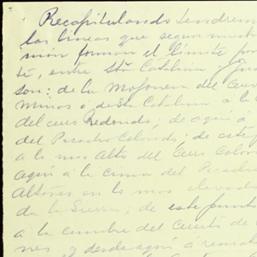 Recapitulando tendrem
las lineas que segun nuestr
nion forman el límite por
te, entre Sta Catalina y
son: de la Mojonera del Cerro
Minas á Santa Catalina á la
del cerro Redondo; de aquí á
del Picacho Colorado; de este
á lo mas alto del Cerro Color
aquí á la cima del Picacho
en lo mas elevado
de la Sierra; de este punto
á la cumbre del Cerrito de
nes, y desde aquí á